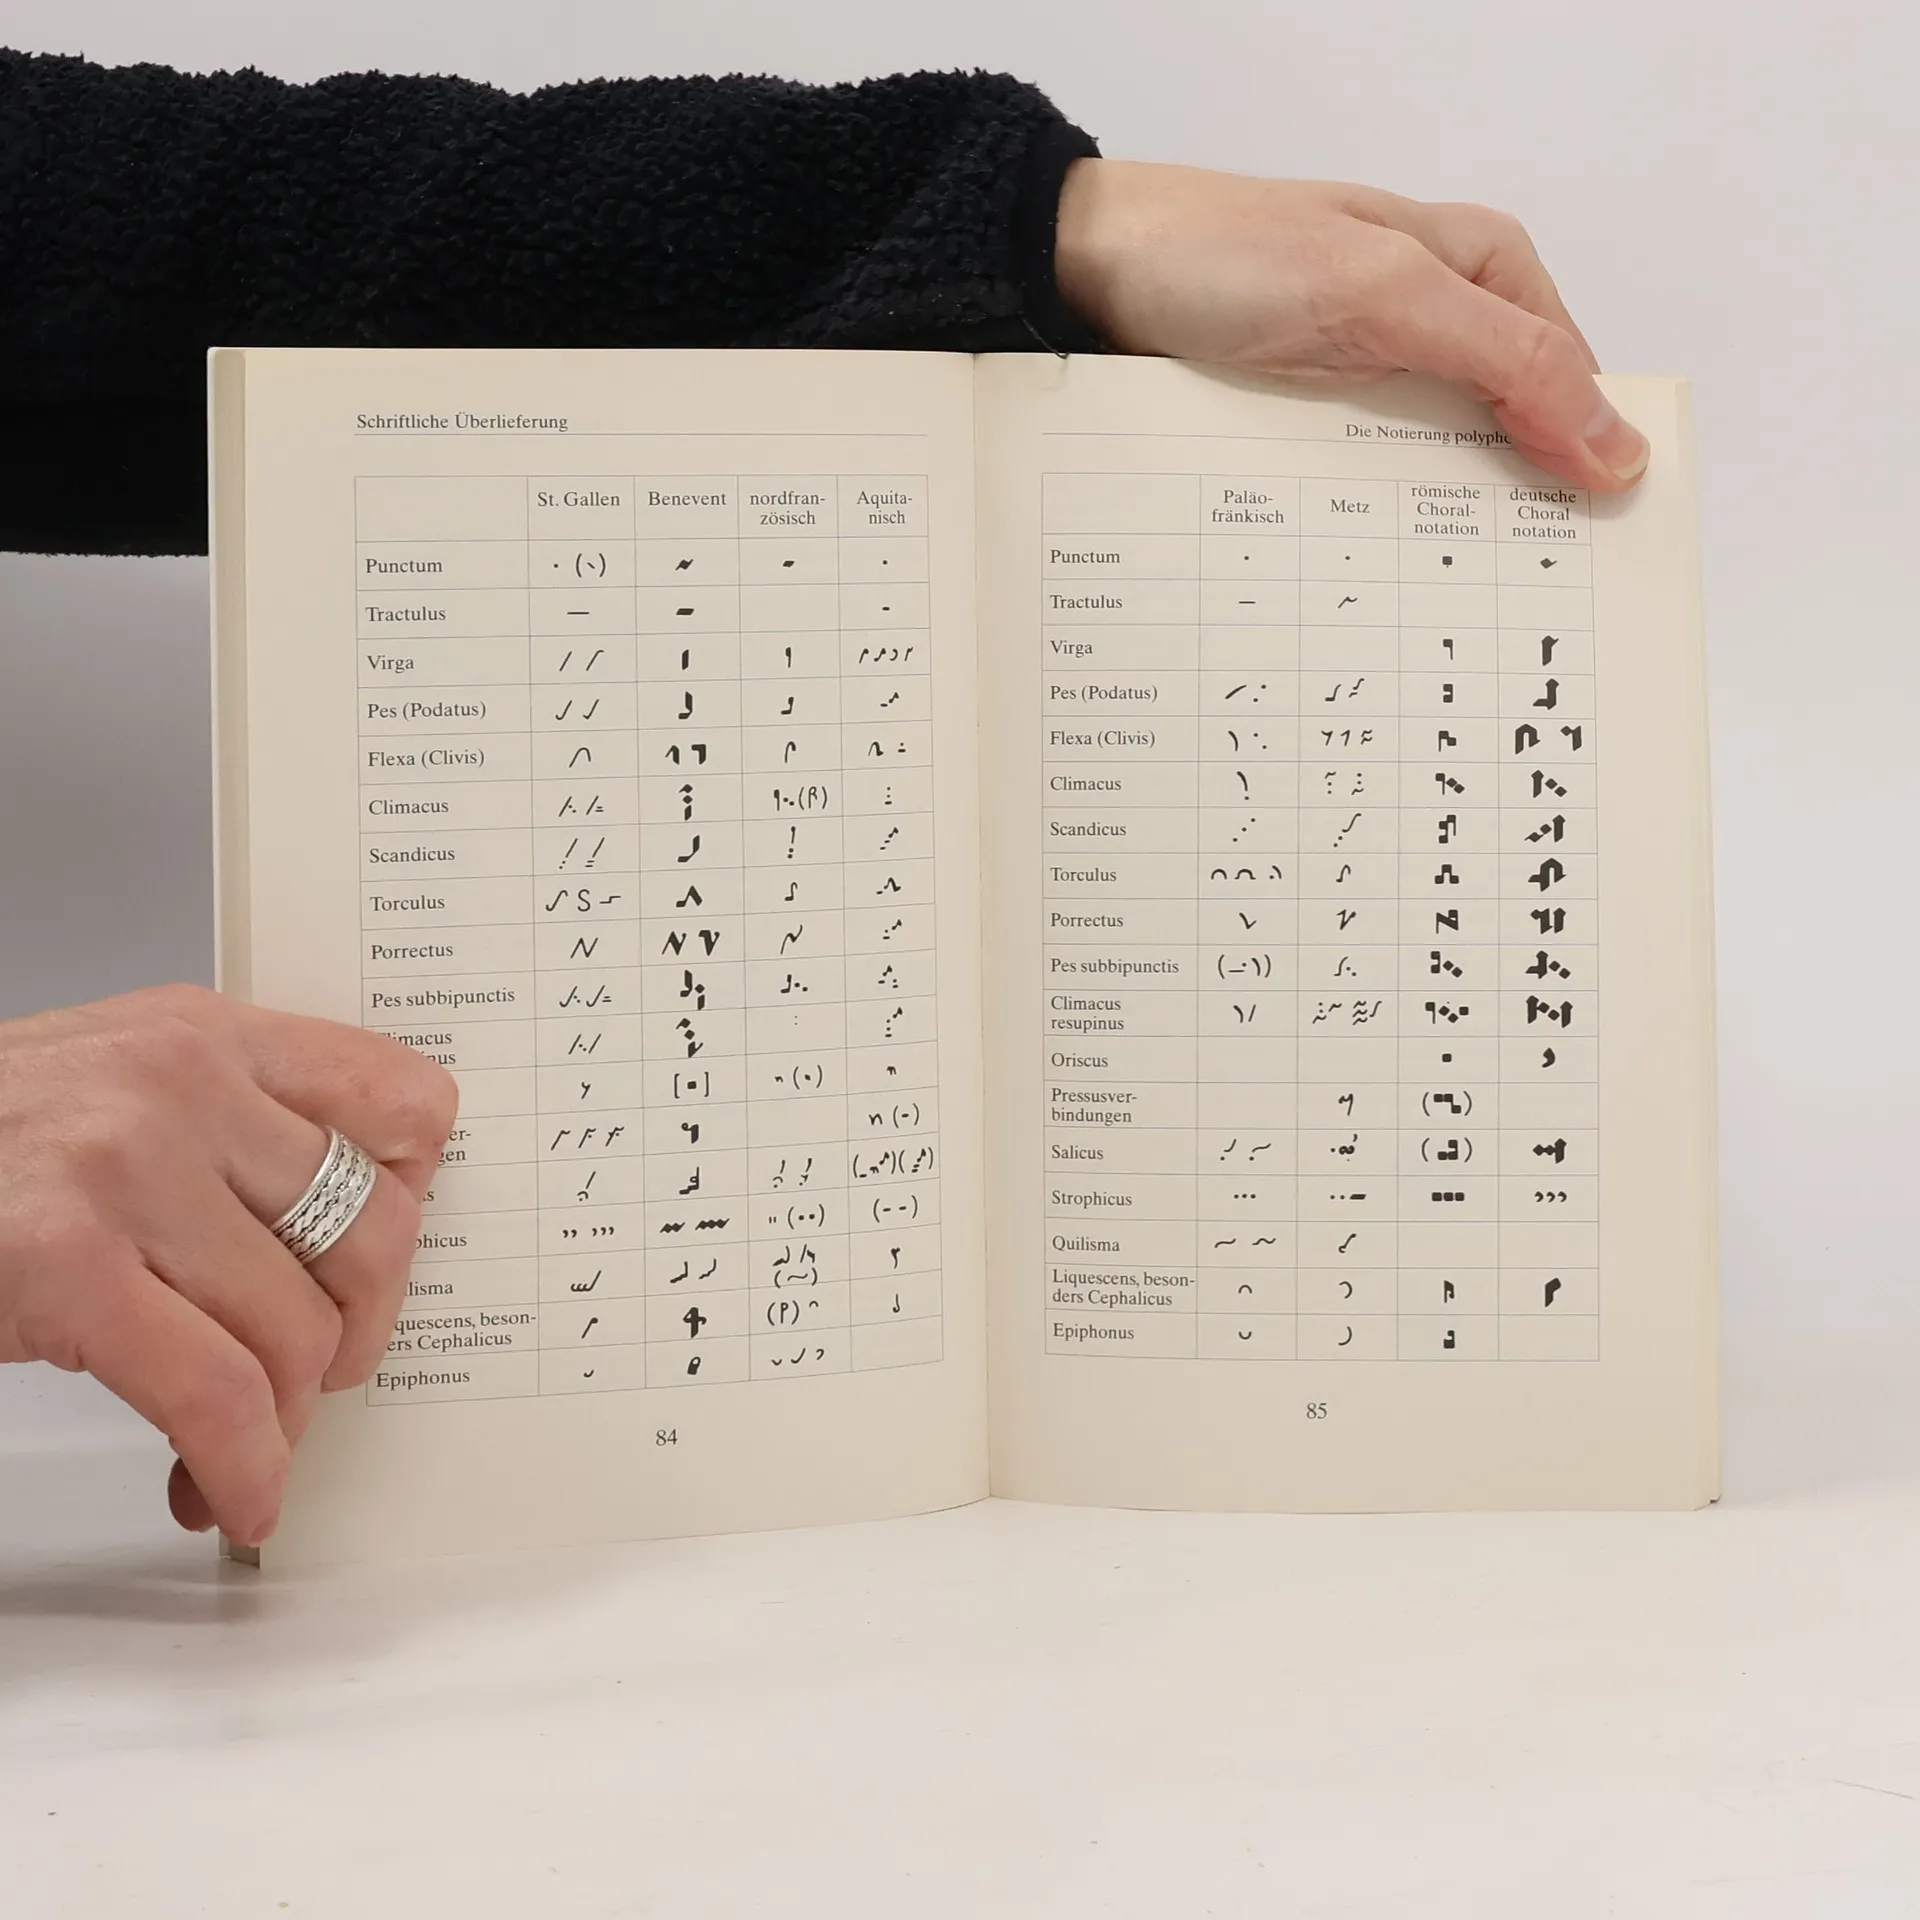 Schriftliche Überlieferung
St. Gallen Benevent nordfran- Aquita-
zösisch nisch
Punctum
Tractulus
Virga
Pes (Podatus)
Flexa (Clivis)
Climacus
Scandicus
Torculus
Porrectus
Pes subbipunctis
Epiphonus
ders Cephalicus
84
Die Notierung
Paläo- Metz römische deutsche
fränkisch Choral- Choral
notation notation
Punctum
Tractulus
Virga
Pes (Podatus)
Flexa (Clivis)
Climacus
Scandicus
Torculus
Porrectus
Pes subbipunctis
Climacus
resupinus
Oriscus
Pressusver-
bindungen
Salicus
Strophicus
Quilisma
Liquescens, beson-
ders Cephalicus
Epiphonus
85